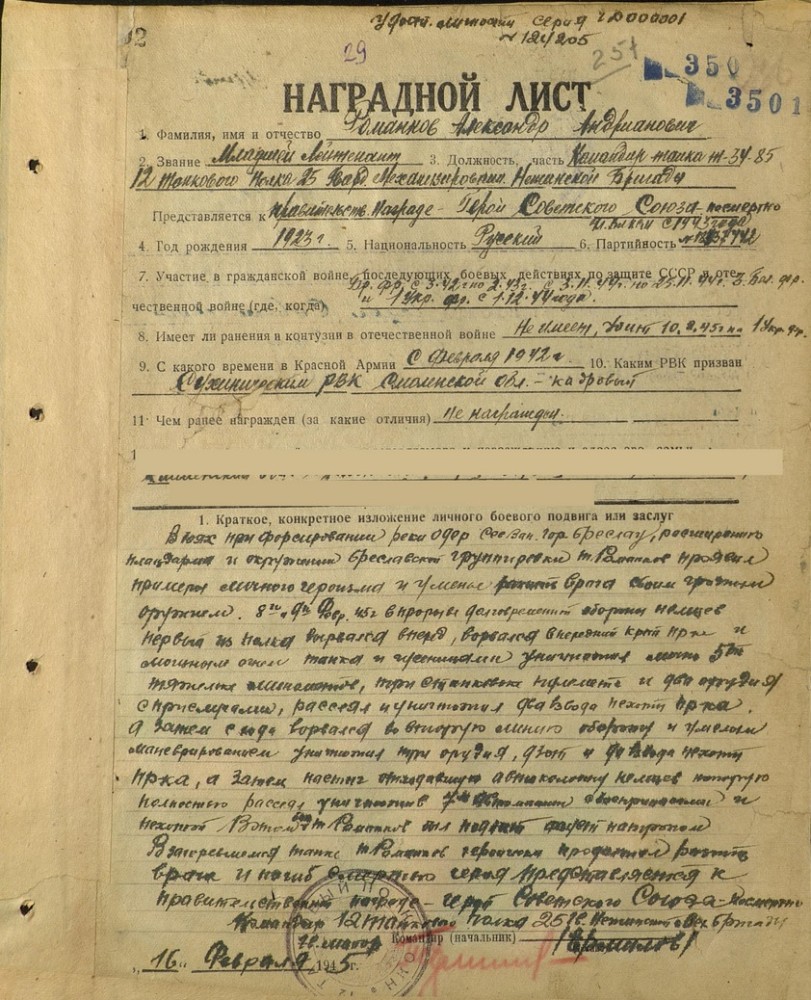 Удост. личности серия
29
251
350
3501
НАГРАДНОЙ ЛИСТ
1. Фамилия, имя и отчество Романков Александр Андрианович
2. Звание Младший Лейтенант 3. Должность, часть Командир танка Т-34-85
12 танкового полка 25 Гвард. Механизирован. Нежинской Бригады
Представляется к правительств. награде - Герой Советского Союза - посмертно
чл. ВКП(б) с 1943 года
4. Год рождения 1923 г. 5. Национальность Русский 6. Партийность
7. Участие в гражданской войне, последующих боевых действиях по защите СССР и отечественной войне (где, когда)
и 1 Укр. фр. с 1.12.44 года.
8. Имеет ли ранения и контузии в отечественной войне Не имеет, убит 10.2.45 г. на 1 Укр. фр.
9. С какого времени в Красной Армии С Февраля 1942 г. 10. Каким РВК призван
Сухиничским РВК Смоленской обл. - кадровый
11. Чем ранее награжден (за какие отличия) Не награжден.
1. Краткое, конкретное изложение личного боевого подвига или заслуг
В боях при форсировании реки Одер гор. Бреслау, расширении
плацдарма и окружении Бреславской группировки т. Романков проявил
примеры личного героизма и уменья врага своим грозным
оружием. 8 и 9 Февр. 45 г. в прорыве долговременной обороны немцев
первый из полка вырвался вперед, ворвался в передний край пр-ка и
мощным огнем танка и гусеницами уничтожил 5
тяжелых минометов, три станковых пулемета и два орудия
с прислугами, рассеял и уничтожил два взвода пехоты пр-ка.
А затем с хода ворвался во вторую линию обороны и умелым
маневрированием уничтожил три орудия, дзот и два взвода пехоты
пр-ка, а затем настиг отходившую автоколонну немцев которую
полностью рассеял уничтожив 7 с боеприпасами и
пехотой. В этом бою т. Романков был подбит фауст патроном
В загоревшемся танке т. Романков героически продолжал разить
врага и погиб смертью героя. Представляется к
правительственной награде - герой Советского Союза - посмертно
Командир 12 танкового полка 25 гв. Нежинской мех. бригады
гв. майор Командир (начальник) /Ермилов/
„16" Февраля 1945 г.